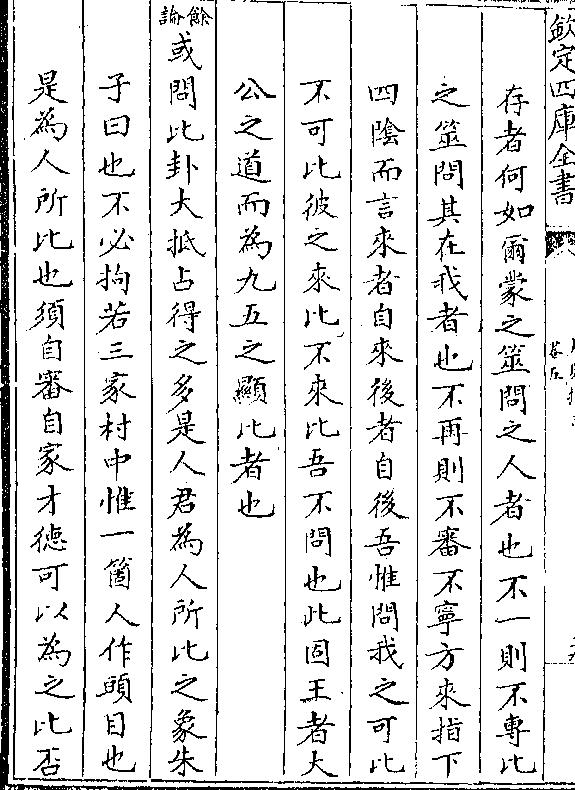 欽定四庫全書
存者何如爾蒙之筮問之人者也不一則不專比
之筮問其在我者也不再則不審不寧方來指下
四陰而言來者自來後者自後吾惟問我之可比
不可比彼之來比不來比吾不問也此固王者大
公之道而為九五之顯比者也
餘論或問此卦大抵占得之多是人君為人所比之象朱
子曰也不必拘若三家村中惟一箇人作頭目也
是為人所比也須自審自家才德可以為之比否